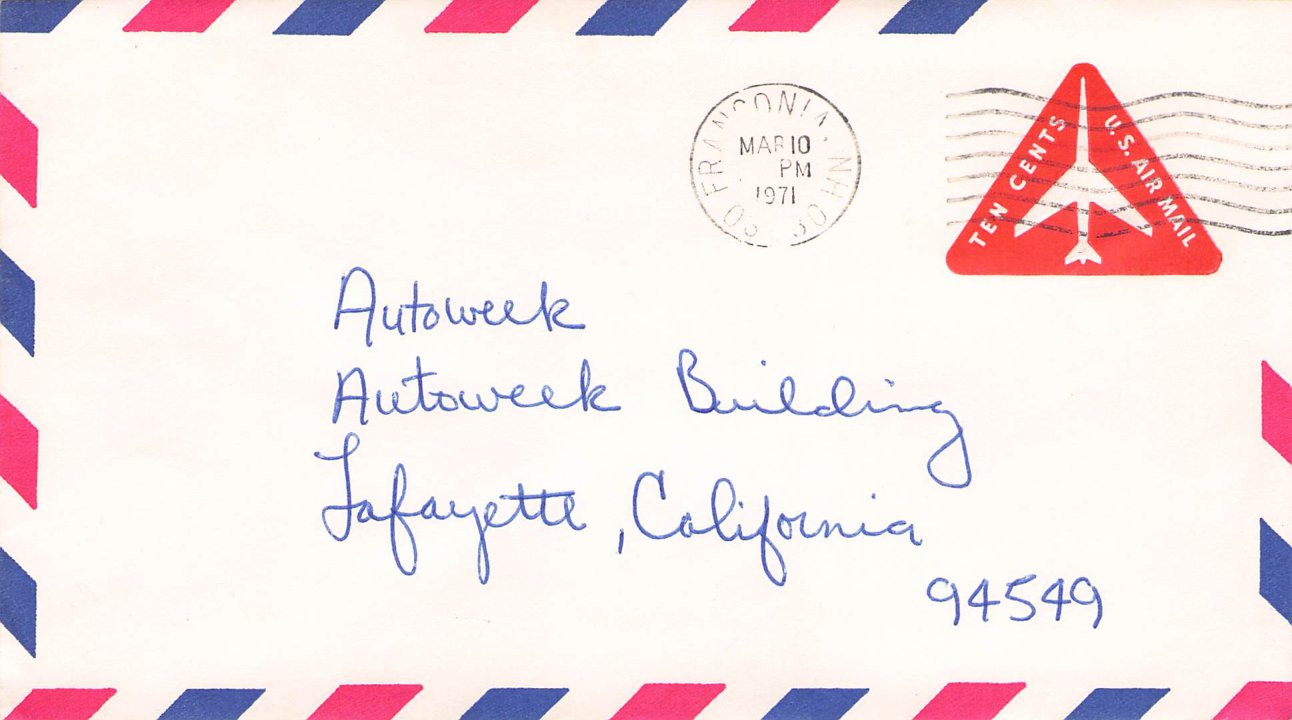 FRANCONIA, NH 03
MAR 10
PM
1971
TEN CENTS
U.S. AIR MAIL
Autoweek
Autoweek Building
Lafayette, California
94549